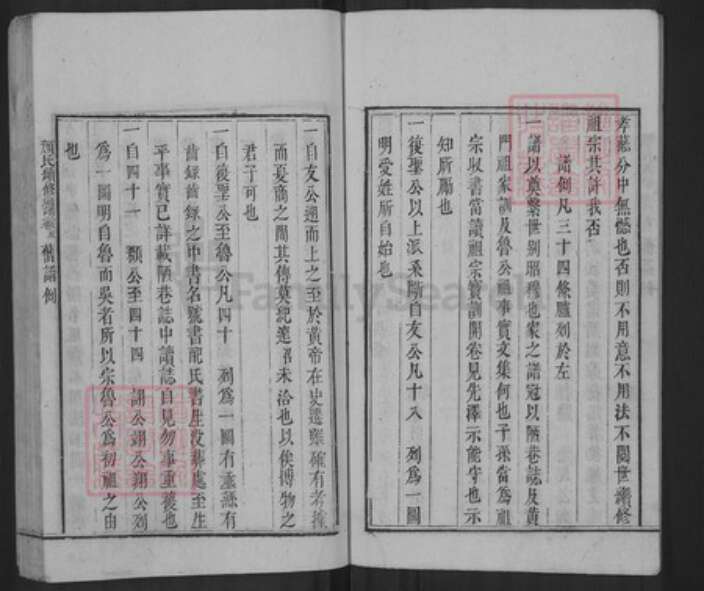 孝慈分中無憾也否則不用意不用法不閱世濟修
祖宗其許我否
譜例凡三十四條臚列於左
一譜以奠繫世別昭穆也家之譜冠以陋巷誌及黃
門祖家訓及魯公祖事實文集何也子孫當為祖
宗収書當讀祖宗寶訓開卷見先澤示能守也示
知所屬也
一復聖公以上派系斷自友公凡十八 列為一圖
明受姓所自始也
一自友公遡而上之至於黃帝在史遷雖確有考據
而夏商之間其傳莫紀 未洽也以俟博物之
君子可也
一自復聖公至魯公凡四十 列為一圖有 蘇有
齒錄齒錄之中書名號書配氏書生没葬處至生
平事實已詳載陋巷誌中讀誌自見勿事重複也
一自四十一 顥公至四十四 詡公翊公翔公列
為一圖明自魯而吳者所以宗魯公為初祖之由
也
顏氏續修譜 卷 舊譜例
FamilySearch